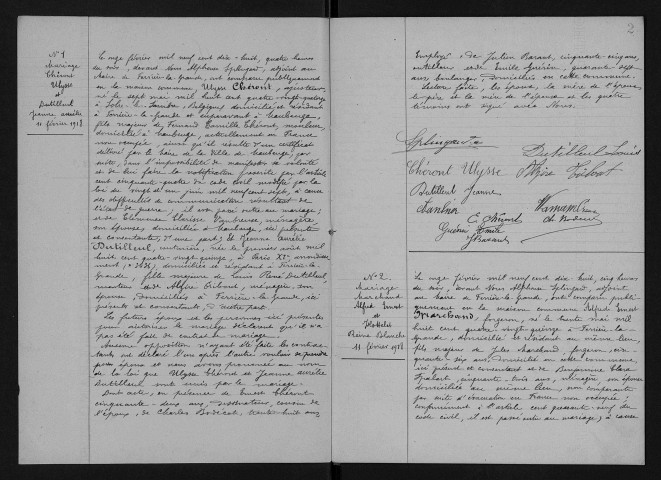 N° 1
Mariage
Chéront
Ulysse
et
Dutilleul
Jeanne Amélie
11 février 1918
Le onze février mil neuf cent dix-huit, quatre heures
du soir, devant Nous Alphonse Splingart, adjoint au
Maire de Ferrière-la-Grande, ont comparu publiquement
en la maison commune, Ulysse Chéront, ajusteur,
né le sept mai mil huit cent quatre-vingt-quatorze
à Solre-sur-Sambre, Belgique, domicilié et résidant
à Ferrière-la-Grande et auparavant à Maubeuge,
fils majeur de Fernand Camille Chéront, mouleur,
domicilié à Maubeuge, actuellement en France
non occupée, ainsi qu'il résulte d'un certificat
délivré par le Maire de la Ville de Maubeuge, par
suite, dans l'impossibilité de manifester sa volonté
et de lui faire la notification prescrite par l'article
cent cinquante-quatre du code civil modifié par la
loi du vingt et un juin mil neuf cent sept, à cause
des difficultés de communication résultant de
l'état de guerre, il sera passé outre au mariage;
et de Clémence Clarisse Vaubreuse, ménagère,
son épouse, domiciliée à Maubeuge, ici présente
et consentante, d'une part; et Jeanne Amélie
Dutilleul, couturière, née le premier août mil
huit cent quatre-vingt-quinze, à Paris XIe arrondisse-
ment, domiciliée et résidant à Ferrière-la-
Grande, fille majeure de Louis René Dutilleul,
et de Alzire Tribout, ménagère, son
épouse, domiciliés à Ferrière-la-Grande, ici
présents et consentants, d'autre part.
Les futurs époux et les personnes ici présentes
pour autoriser le mariage déclarent qu'il n'a
pas été fait de contrat de mariage.
Aucune opposition n'ayant été faite, les contrac-
tants ont déclaré l'un après l'autre vouloir se prendre
pour époux et nous avons prononcé au nom
de la loi que Ulysse Chéront et Jeanne Amélie
Dutilleul sont unis par le mariage.
Dont acte, en présence de Ernest Chéront,
cinquante-deux ans, cousin de
l'époux, de Charles Boderel, trente huit ans
2
employé, de Julien Bavant, cinquante-cinq ans,
et de Emile Guérin, quarante sept
ans, boulanger, domiciliés en cette commune.
Lecture faite, les époux, la mère de l'époux,
le père et la mère de l'épouse et les quatre
témoins ont signé avec Nous.
Splingart A
Dutilleul Louis
Chéront Ulysse
Alzire Tribout
Dutilleul Jeanne
E. Chéront
Guérin Emile
J. Bavant
N° 2
Mariage
Marchand
Alfred Ernest
et
Reine Blanche
11 février 1918
Le onze février mil neuf cent dix huit, cinq heures
du soir, devant Nous Alphonse Splingart, adjoint
au maire de Ferrière-la-Grande, ont comparu publi-
quement en la maison commune Alfred Ernest
Marchand, forgeron, né le trente mai mil
huit cent quatre-vingt-quinze à Ferrière-la-
Grande, domicilié et résidant au même lieu,
fils majeur de Jules Marchand, forgeron, cin-
quante-six ans, domicilié en cette commune,
ici présent et consentant et de Benjamine Clara
Frabart, cinquante trois ans, ménagère, son épouse
domiciliée au même lieu, non comparante
par suite d'évacuation en France non occupée;
conformément à l'article cent quarante-neuf du
code civil, il est passé outre au mariage, à cause